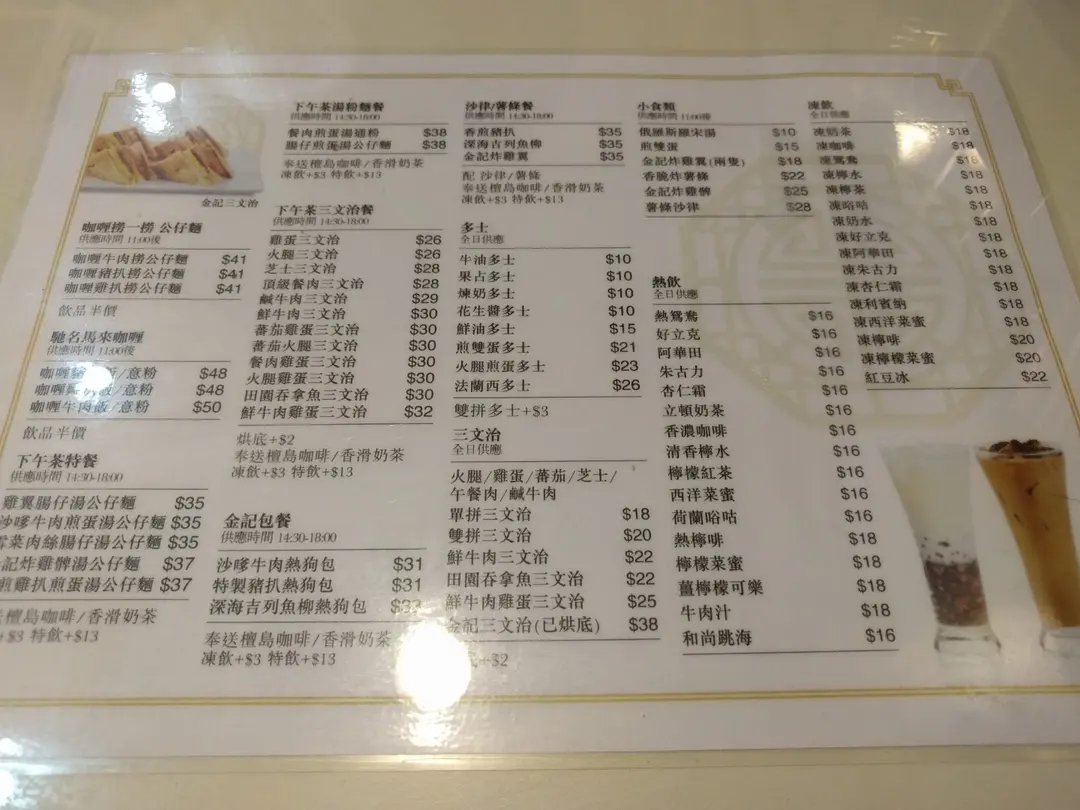 金記三文治
咖喱撈一撈 公仔麵
供應時間 11:00後
咖喱牛肉撈公仔麵 $41
咖喱豬扒撈公仔麵 $41
咖喱雞扒撈公仔麵 $41
飲品半價
馳名馬來咖喱
供應時間 11:00後
咖喱 飯/意粉 $48
咖喱 飯/意粉 $48
咖喱牛肉飯/意粉 $50
飲品半價
下午茶特餐
供應時間 14:30-18:00
雞翼腸仔湯公仔麵 $35
沙嗲牛肉煎蛋湯公仔麵 $35
雪菜肉絲腸仔湯公仔麵 $35
記炸雞髀湯公仔麵 $37
煎雞扒煎蛋湯公仔麵 $37
檀島咖啡/香滑奶茶
+$3 特飲+$13
下午茶湯粉麵餐
供應時間 14:30-18:00
餐肉煎蛋湯通粉 $38
腸仔煎蛋湯公仔麵 $38
奉送檀島咖啡/香滑奶茶
凍飲+$3 特飲+$13
下午茶三文治餐
供應時間 14:30-18:00
雞蛋三文治 $26
火腿三文治 $26
芝士三文治 $28
頂級餐肉三文治 $28
鹹牛肉三文治 $29
鮮牛肉三文治 $30
蕃茄雞蛋三文治 $30
蕃茄火腿三文治 $30
餐肉雞蛋三文治 $30
火腿雞蛋三文治 $30
田園吞拿魚三文治 $30
鮮牛肉雞蛋三文治 $32
烘底+$2
奉送檀島咖啡/香滑奶茶
凍飲+$3 特飲+$13
金記包餐
供應時間 14:30-18:00
沙嗲牛肉熱狗包 $31
特製豬扒熱狗包 $31
深海吉列魚柳熱狗包
奉送檀島咖啡/香滑奶茶
凍飲+$3 特飲+$13
沙律/薯條餐
供應時間 14:30-18:00
香煎豬扒 $35
深海吉列魚柳 $35
金記炸雞翼 $35
配 沙律/薯條
奉送檀島咖啡/香滑奶茶
凍飲+$3 特飲+$13
多士
全日供應
牛油多士 $10
果占多士 $10
煉奶多士 $10
花生醬多士 $10
鮮油多士 $15
煎雙蛋多士 $21
火腿煎蛋多士 $23
法蘭西多士 $26
雙拼多士+$3
三文治
全日供應
火腿/雞蛋/蕃茄/芝士/
午餐肉/鹹牛肉
單拼三文治 $18
雙拼三文治 $20
鮮牛肉三文治 $22
田園吞拿魚三文治 $22
鮮牛肉雞蛋三文治 $25
金記三文治(已烘底) $38
+$2
小食類
供應時間 11:00後
俄羅斯羅宋湯 $10
煎雙蛋 $15
金記炸雞翼(兩隻) $18
香脆炸薯條 $22
金記炸雞髀 $25
薯條沙律 $28
熱飲
全日供應
熱鴛鴦 $16
好立克 $16
阿華田 $16
朱古力 $16
杏仁霜 $16
立頓奶茶 $16
香濃咖啡 $16
清香檸水 $16
檸檬紅茶 $16
西洋菜蜜 $16
荷蘭唂咕 $16
熱檸啡 $18
檸檬菜蜜 $18
薑檸檬可樂 $18
牛肉汁 $18
和尚跳海 $16
凍飲
全日供應
凍奶茶 $18
凍咖啡 $18
凍鴛鴦 $18
凍檸水 $18
凍檸茶 $18
凍唂咕 $18
凍奶水 $18
凍好立克 $18
凍阿華田 $18
凍朱古力 $18
凍杏仁霜 $18
凍利賓納 $18
凍西洋菜蜜 $18
凍檸啡 $20
凍檸檬菜蜜 $20
紅豆冰 $22